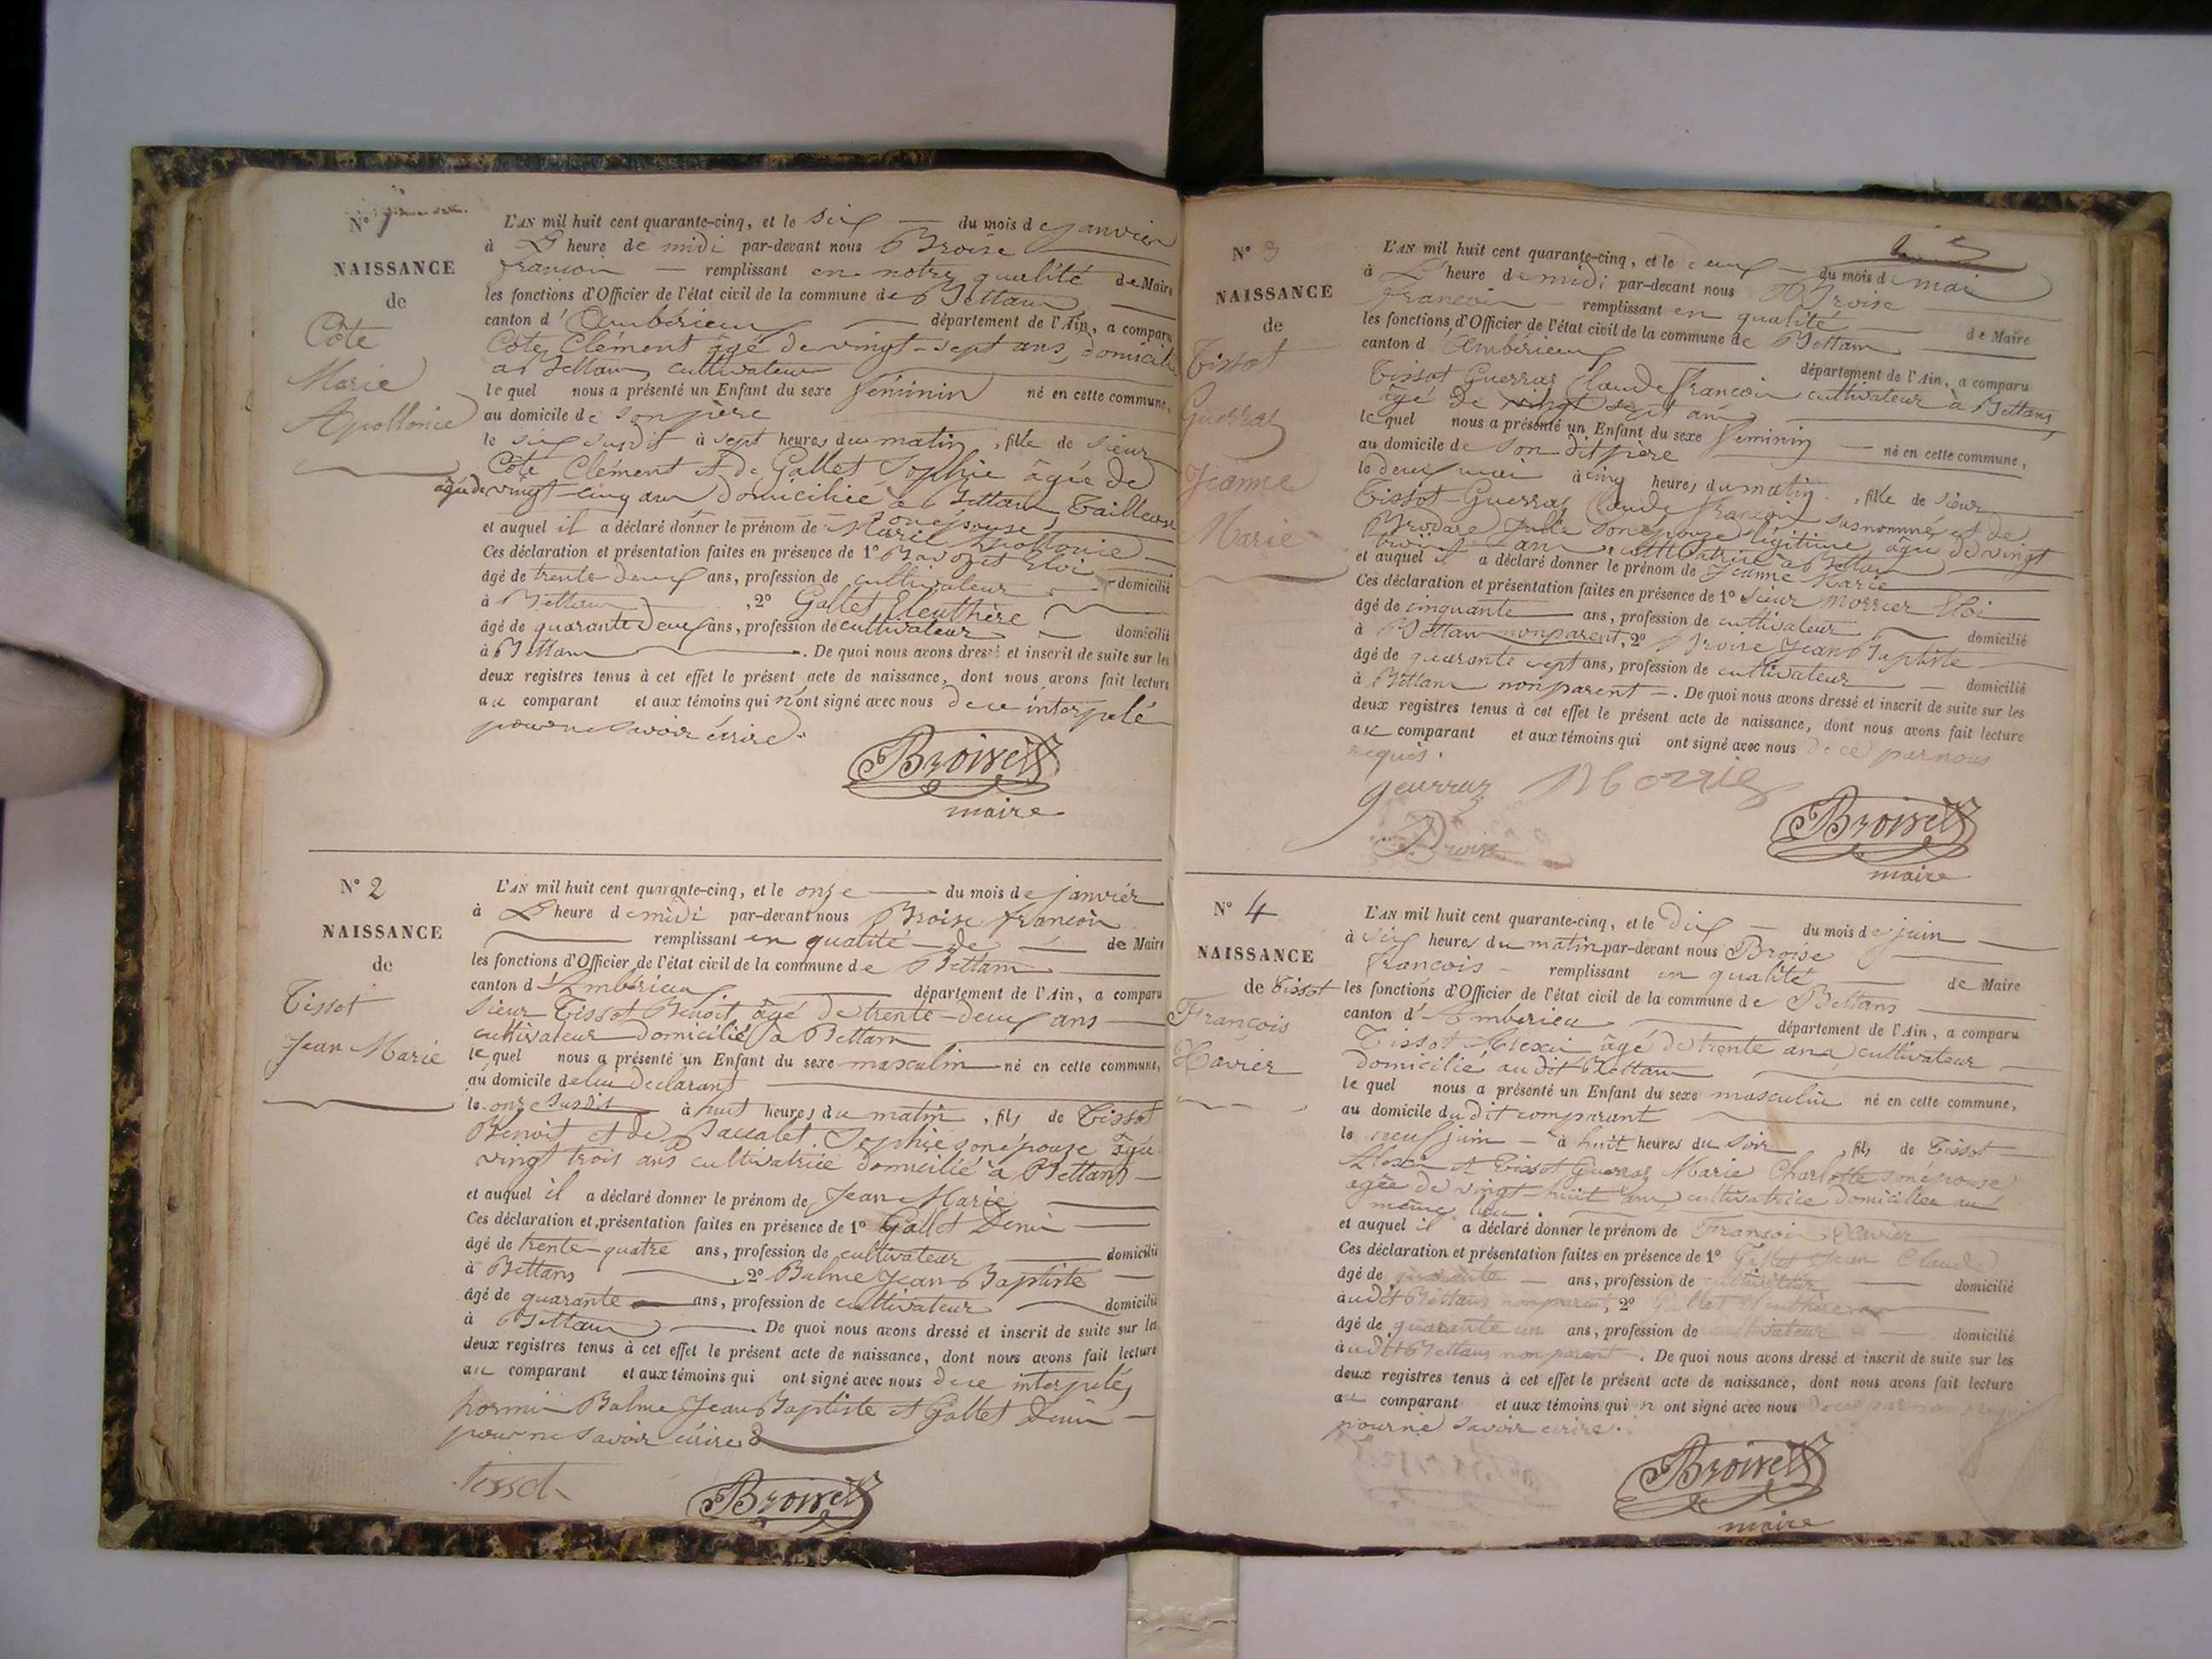 N° 1
NAISSANCE
de
Côte
Marie
Apollonie
L'AN mil huit cent quarante-cinq, et le six du mois de janvier
à L'heure de midi par-devant nous Broise
francois remplissant en notre qualité de Maire
les fonctions d'Officier de l'état civil de la commune de Bettans
canton d'Ambérieux département de l'Ain, a comparu
Côte Clément âgé de vingt-sept ans, domicilié
a Bettans, cultivateur
le quel nous a présenté un Enfant du sexe féminin né en cette commune,
au domicile de son père
le six susdit à sept heures du matin, fille de sieur
Côte Clément et de Gallet Sophie âgée de
âgée de vingt-cinq ans domiciliée à Bettans Tailleuse
son épouse
et auquel il a déclaré donner le prénom de Marie Apollonie
Ces déclaration et présentation faites en présence de 1° Eloi
âgé de trente-deux ans, profession de cultivateur domicilié
à Bettans, 2° Gallet Eleuthère
âgé de quarante deux ans, profession de cultivateur domicilié
à Bettans. De quoi nous avons dressé et inscrit de suite sur les
deux registres tenus à cet effet le présent acte de naissance, dont nous avons fait lecture
au comparant et aux témoins qui n'ont signé avec nous de ce interpelé
pour ne savoir écrire.
Broise
maire
N° 2
NAISSANCE
de
Tissot
Jean Marie
L'AN mil huit cent quarante-cinq, et le onze du mois de janvier
à L'heure de midi par-devant nous Broise francois
remplissant en qualité de de Maire
les fonctions d'Officier de l'état civil de la commune de Bettans
canton d'Ambérieux département de l'Ain, a comparu
sieur Tissot Benoit âgé de trente-deux ans
cultivateur domicilié à Bettans
le quel nous a présenté un Enfant du sexe masculin né en cette commune,
au domicile de lui declarant
le onze susdit à huit heures du matin, fils de Tissot
Benoit et de Baccalet Sophie son épouse âgée
vingt trois ans cultivatrice domicilié à Bettans
et auquel il a déclaré donner le prénom de Jean Marie
Ces déclaration et présentation faites en présence de 1° Gallet Denis
âgé de trente-quatre ans, profession de cultivateur domicilié
à Bettans, 2° Balme Jean Baptiste
âgé de quarante ans, profession de cultivateur domicilié
à Bettans. De quoi nous avons dressé et inscrit de suite sur les
deux registres tenus à cet effet le présent acte de naissance, dont nous avons fait lecture
au comparant et aux témoins qui ont signé avec nous de ce interpelés
hormis Balme Jean Baptiste et Gallet Denis
pour ne savoir écrire
tissot
Broise
N° 3
NAISSANCE
de
Tissot
Guerraz
Jeanne
Marie
L'AN mil huit cent quarante-cinq, et le deux du mois de mai
à L'heure de midi par-devant nous Broise
francois remplissant en qualité de Maire
les fonctions d'Officier de l'état civil de la commune de Bettans
canton d'Ambérieux département de l'Ain, a comparu
Tissot Guerraz Claude François cultivateur à Bettans
âgé de vingt sept ans
le quel nous a présenté un Enfant du sexe féminin né en cette commune,
au domicile de son dit père
le deux mai à cinq heures du matin, fille de sieur
Tissot-Guerraz Claude françois susnommé et de
Julie son épouse légitime âgée de vingt
trois ans, cultivatrice à Bettans
et auquel il a déclaré donner le prénom de Jeanne Marie
Ces déclaration et présentation faites en présence de 1° sieur Morrier Eloi
âgé de cinquante ans, profession de cultivateur domicilié
à Bettans non parent, 2° Broise Jean Baptiste
âgé de quarante sept ans, profession de cultivateur domicilié
à Bettans non parent. De quoi nous avons dressé et inscrit de suite sur les
deux registres tenus à cet effet le présent acte de naissance, dont nous avons fait lecture
au comparant et aux témoins qui ont signé avec nous de ce par nous
requis.
guerraz Morrier
Broise
Broise
maire
N° 4
NAISSANCE
de Tissot
François
Xavier
L'AN mil huit cent quarante-cinq, et le dix du mois de juin
à six heures du matin par-devant nous Broise
francois remplissant en qualité de Maire
les fonctions d'Officier de l'état civil de la commune de Bettans
canton d'Amberieu département de l'Ain, a comparu
Tissot Alexis âgé de trente ans cultivateur
domicilié au dit Bettans
le quel nous a présenté un Enfant du sexe masculin né en cette commune,
au domicile du dit comparant
le neuf juin à huit heures du soir, fils de Tissot
Alexis et Tissot Guerraz Marie Charlotte son épouse
agée de vingt-huit ans cultivatrice domiciliée au
même lieu.
et auquel il a déclaré donner le prénom de François Xavier
Ces déclaration et présentation faites en présence de 1° Gallet Jean Claude
âgé de quarante ans, profession de cultivateur domicilié
à udit Bettans non parent, 2° Gallet Eleuthère
âgé de quarante un ans, profession de cultivateur domicilié
à udit Bettans non parent. De quoi nous avons dressé et inscrit de suite sur les
deux registres tenus à cet effet le présent acte de naissance, dont nous avons fait lecture
au comparant et aux témoins qui n ont signé avec nous de ce par nous requis
pour ne savoir écrire.
Broise
maire